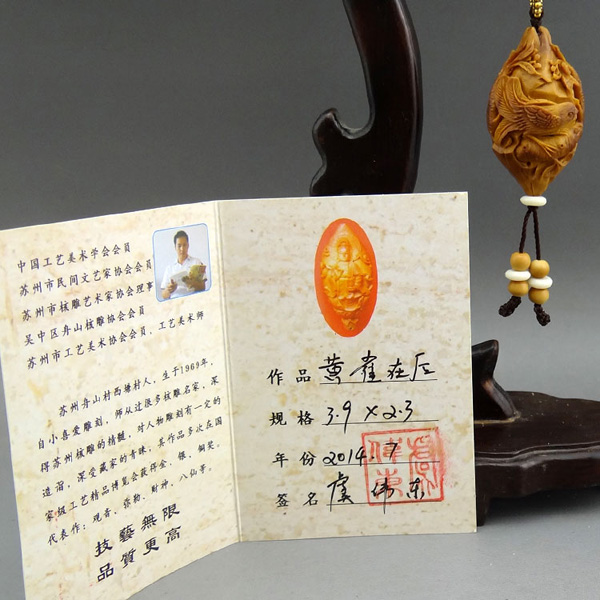 中国工艺美术学会会员
苏州市民间文艺家协会会员
苏州市核雕艺术家协会理事
吴中区舟山核雕协会会员
苏州市工艺美术协会会员、工艺美术师
苏州舟山村西塘村人，生于1969年，
自小喜爱雕刻，师从过很多核雕名家，深
得苏州核雕的精髓，对人物雕刻有一定的
造诣，深受藏家的青睐，其作品多次在国
家级工艺精品博览会获得金、银、铜奖。
代表作：观音、弥勒、财神、八仙等。
技藝無限
品質更高
作品 黄雀在后
规格 3.9 X 2.3
年份 2014.7
签名 虞伟东